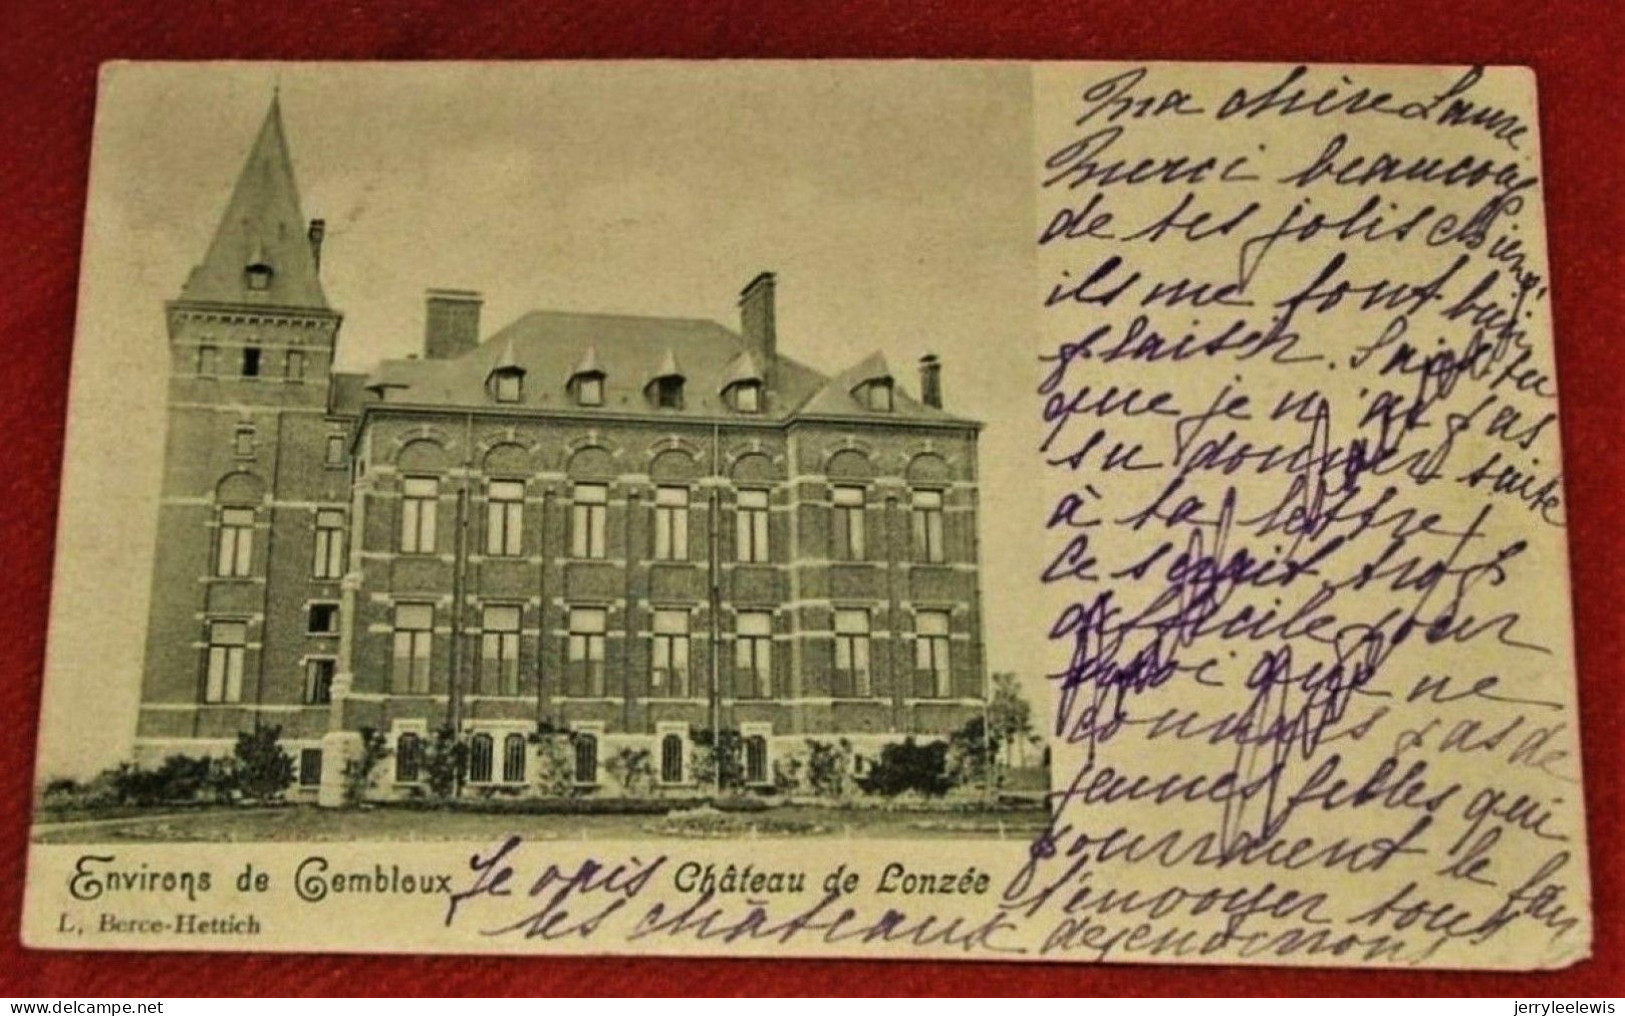 Ma chère Laure
Merci beaucoup
de tes jolis chiens,
ils me font bien
plaisir. Sais-tu
que je n'ai pas
su donner suite
à ta lettre,
Ce serait trop
difficile pour
moi qui ne
connais pas de
jeunes filles qui
pourraient le
l'envoyer tous
des environs
Environs de Gembloux Château de Lonzée
Je
les châteaux
L. Berce-Hettich
www.delcampe.net
jerryleelewis